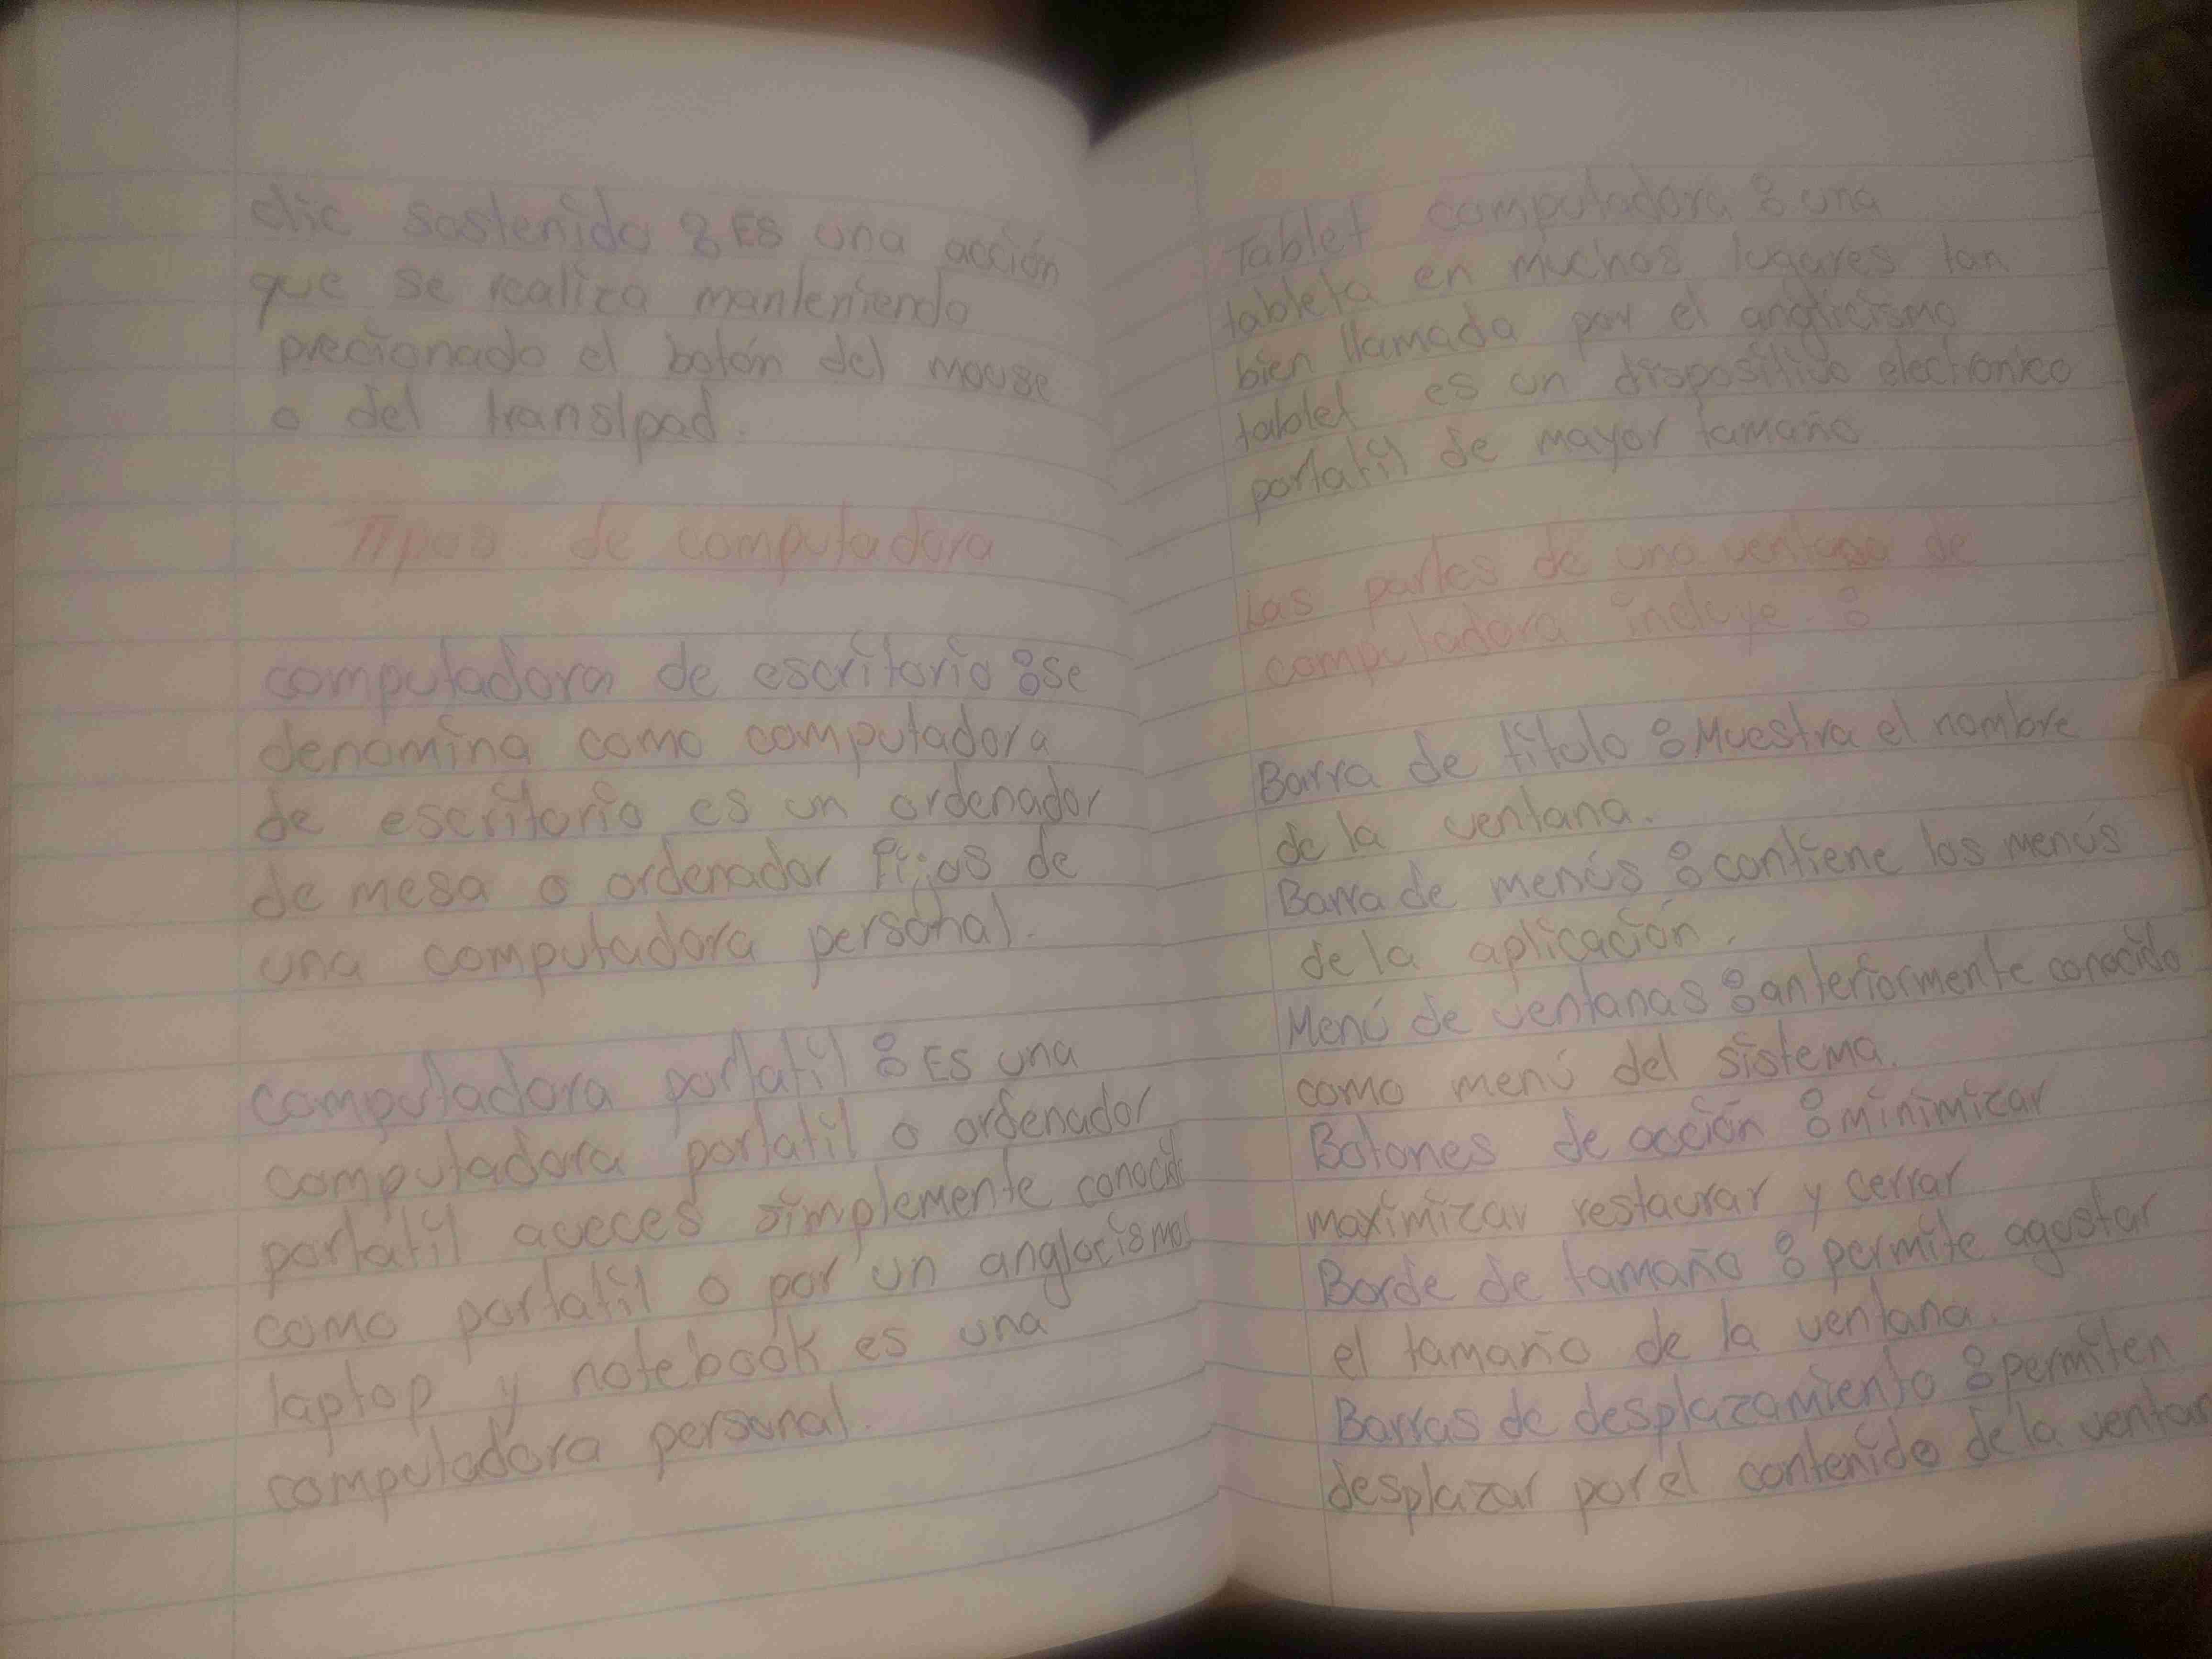 clic sostenido : Es una acción
que se realiza manteniendo
precionado el botón del mouse
o del translpad.
Tipos de computadora
computadora de escritorio : se
denomina como computadora
de escritorio es un ordenador
de mesa o ordenador fijos de
una computadora personal.
computadora portatil : Es una
computadora portatil o ordenador
portatil aveces simplemente conocido
como portatil o por un anglocismo
laptop y notebook es una
computadora personal.
Tablet computadora : una
tableta en muchos lugares tan
bien llamada por el anglicismo
tablet es un dispositivo electronico
portatil de mayor tamaño
Las partes de una ventana de
computadora incluye. :
Barra de título : Muestra el nombre
de la ventana.
Barra de menús : contiene los menús
de la aplicación.
Menú de ventanas : anteriormente conocido
como menú del sistema.
Botones de acción : minimizar
maximizar restaurar y cerrar
Borde de tamaño : permite agustar
el tamaño de la ventana.
Barras de desplazamiento : permiten
desplazar por el contenido de la ventan